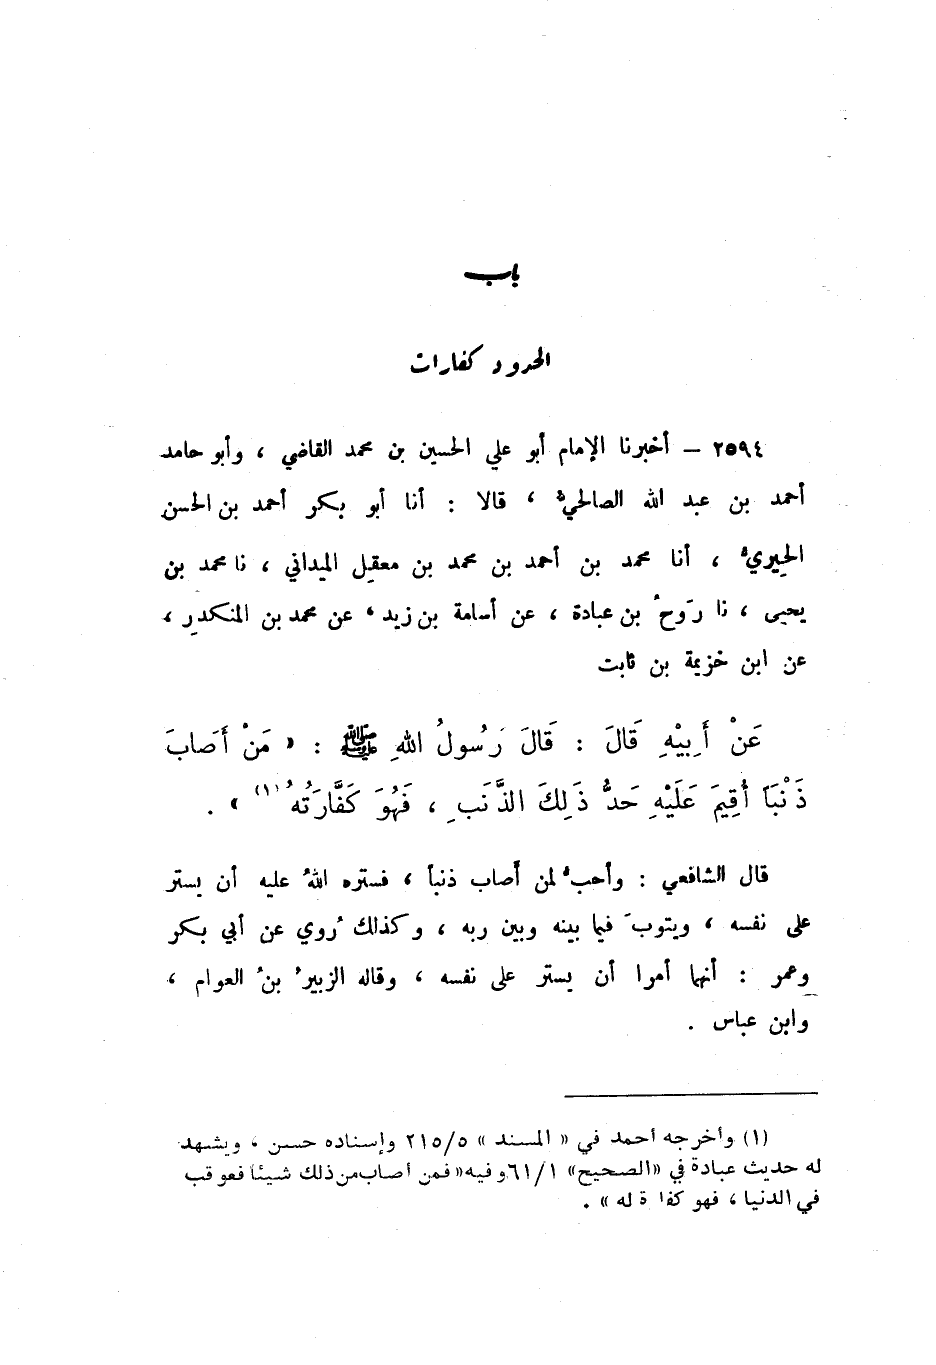 باب
الحدود كفارات
٢٥٩٤ – أخبرنا الإمام أبو علي الحسين بن محمد القاضي ، وأبو حامد
أحمد بن عبد الله الصالحيُّ ، قالا : أنا أبو بكر أحمد بن الحسن
الحِيريُّ ، أنا محمد بن أحمد بن محمد بن معقِل الميداني ، نا محمد بن
يحيى ، نا رَوحُ بن عبادة ، عن أسامة بن زيد ، عن محمد بن المنكدِر ،
عن ابن خزيمة بن ثابت
عَنْ أَبِيْهِ قَالَ : قَالَ رَسُولُ اللهِ ﷺ : « مَنْ أَصَابَ
ذَنْبَاً أُقِيمَ عَلَيْهِ حَدُّ ذَلِكَ الذَّنَبِ ، فَهُوَ كَفَّارَتُهُ (١) » .
قال الشافعي : وأحبُّ لمن أصاب ذنباً ، فستره اللهُ عليه أن يستر
على نفسه ، ويتوبَ فيما بينه وبين ربه ، وكذلك رُوي عن أبي بكر
وعمر : أنهما أمرا أن يستر على نفسه ، وقاله الزبيرُ بنُ العوام ،
وابن عباس .
(١) وأخرجه أحمد في « المسند » ٢١٥/٥ وإسناده حسن ، ويشهد
له حديث عبادة في «الصحيح» ٦١/١ وفيه« فمن أصاب من ذلك شيئا فعوقب
في الدنيا ، فهو كفا ة له » .